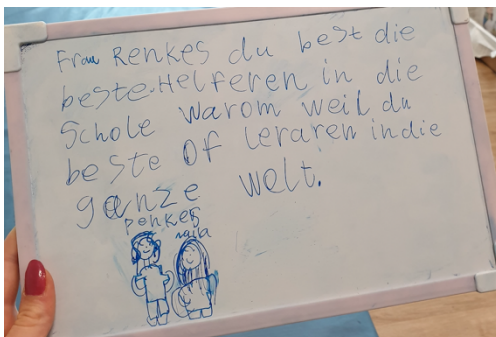 Frau RENKES du best die
beste.Helferen in die
Schole warom weil du
beste of leraren in die
ganze welt.
penkes
naila